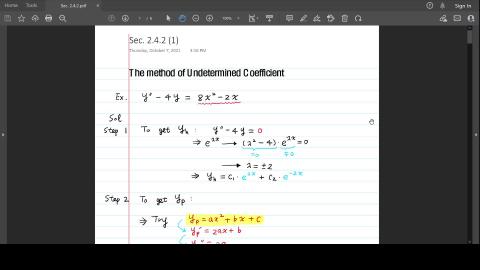 Home Tools Sec. 2.4.2.pdf × Sign In
Sec. 2.4.2 (1)
Thursday, October 7, 2021 3:50 PM
The method of Undetermined Coefficient
Ex. y'' - 4y = 8x² - 2x
Sol
Step 1 To get yₕ : y'' - 4y = 0
⇒ e^{λx} → (λ² - 4) · e^{λx} = 0
=0 ≠0
→ λ = ±2
⇒ yₕ = c₁ · e^{2x} + c₂ · e^{-2x}
Step 2 To get yₚ :
⇒ Try yₚ = ax² + bx + c
yₚ' = 2ax + b